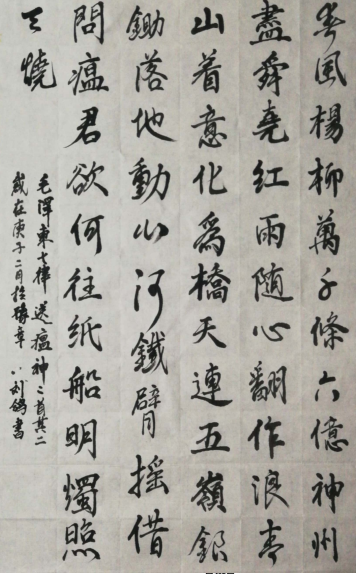 春風楊柳萬千條六億神州
盡舜堯紅雨随心翻作浪青
山着意化爲橋天連五嶺銀
鋤落地動山河鐵臂摇借
問瘟君欲何往紙船明燭照
天燒
毛澤東七律送瘟神二首其二
歲在庚子二月於章刘書